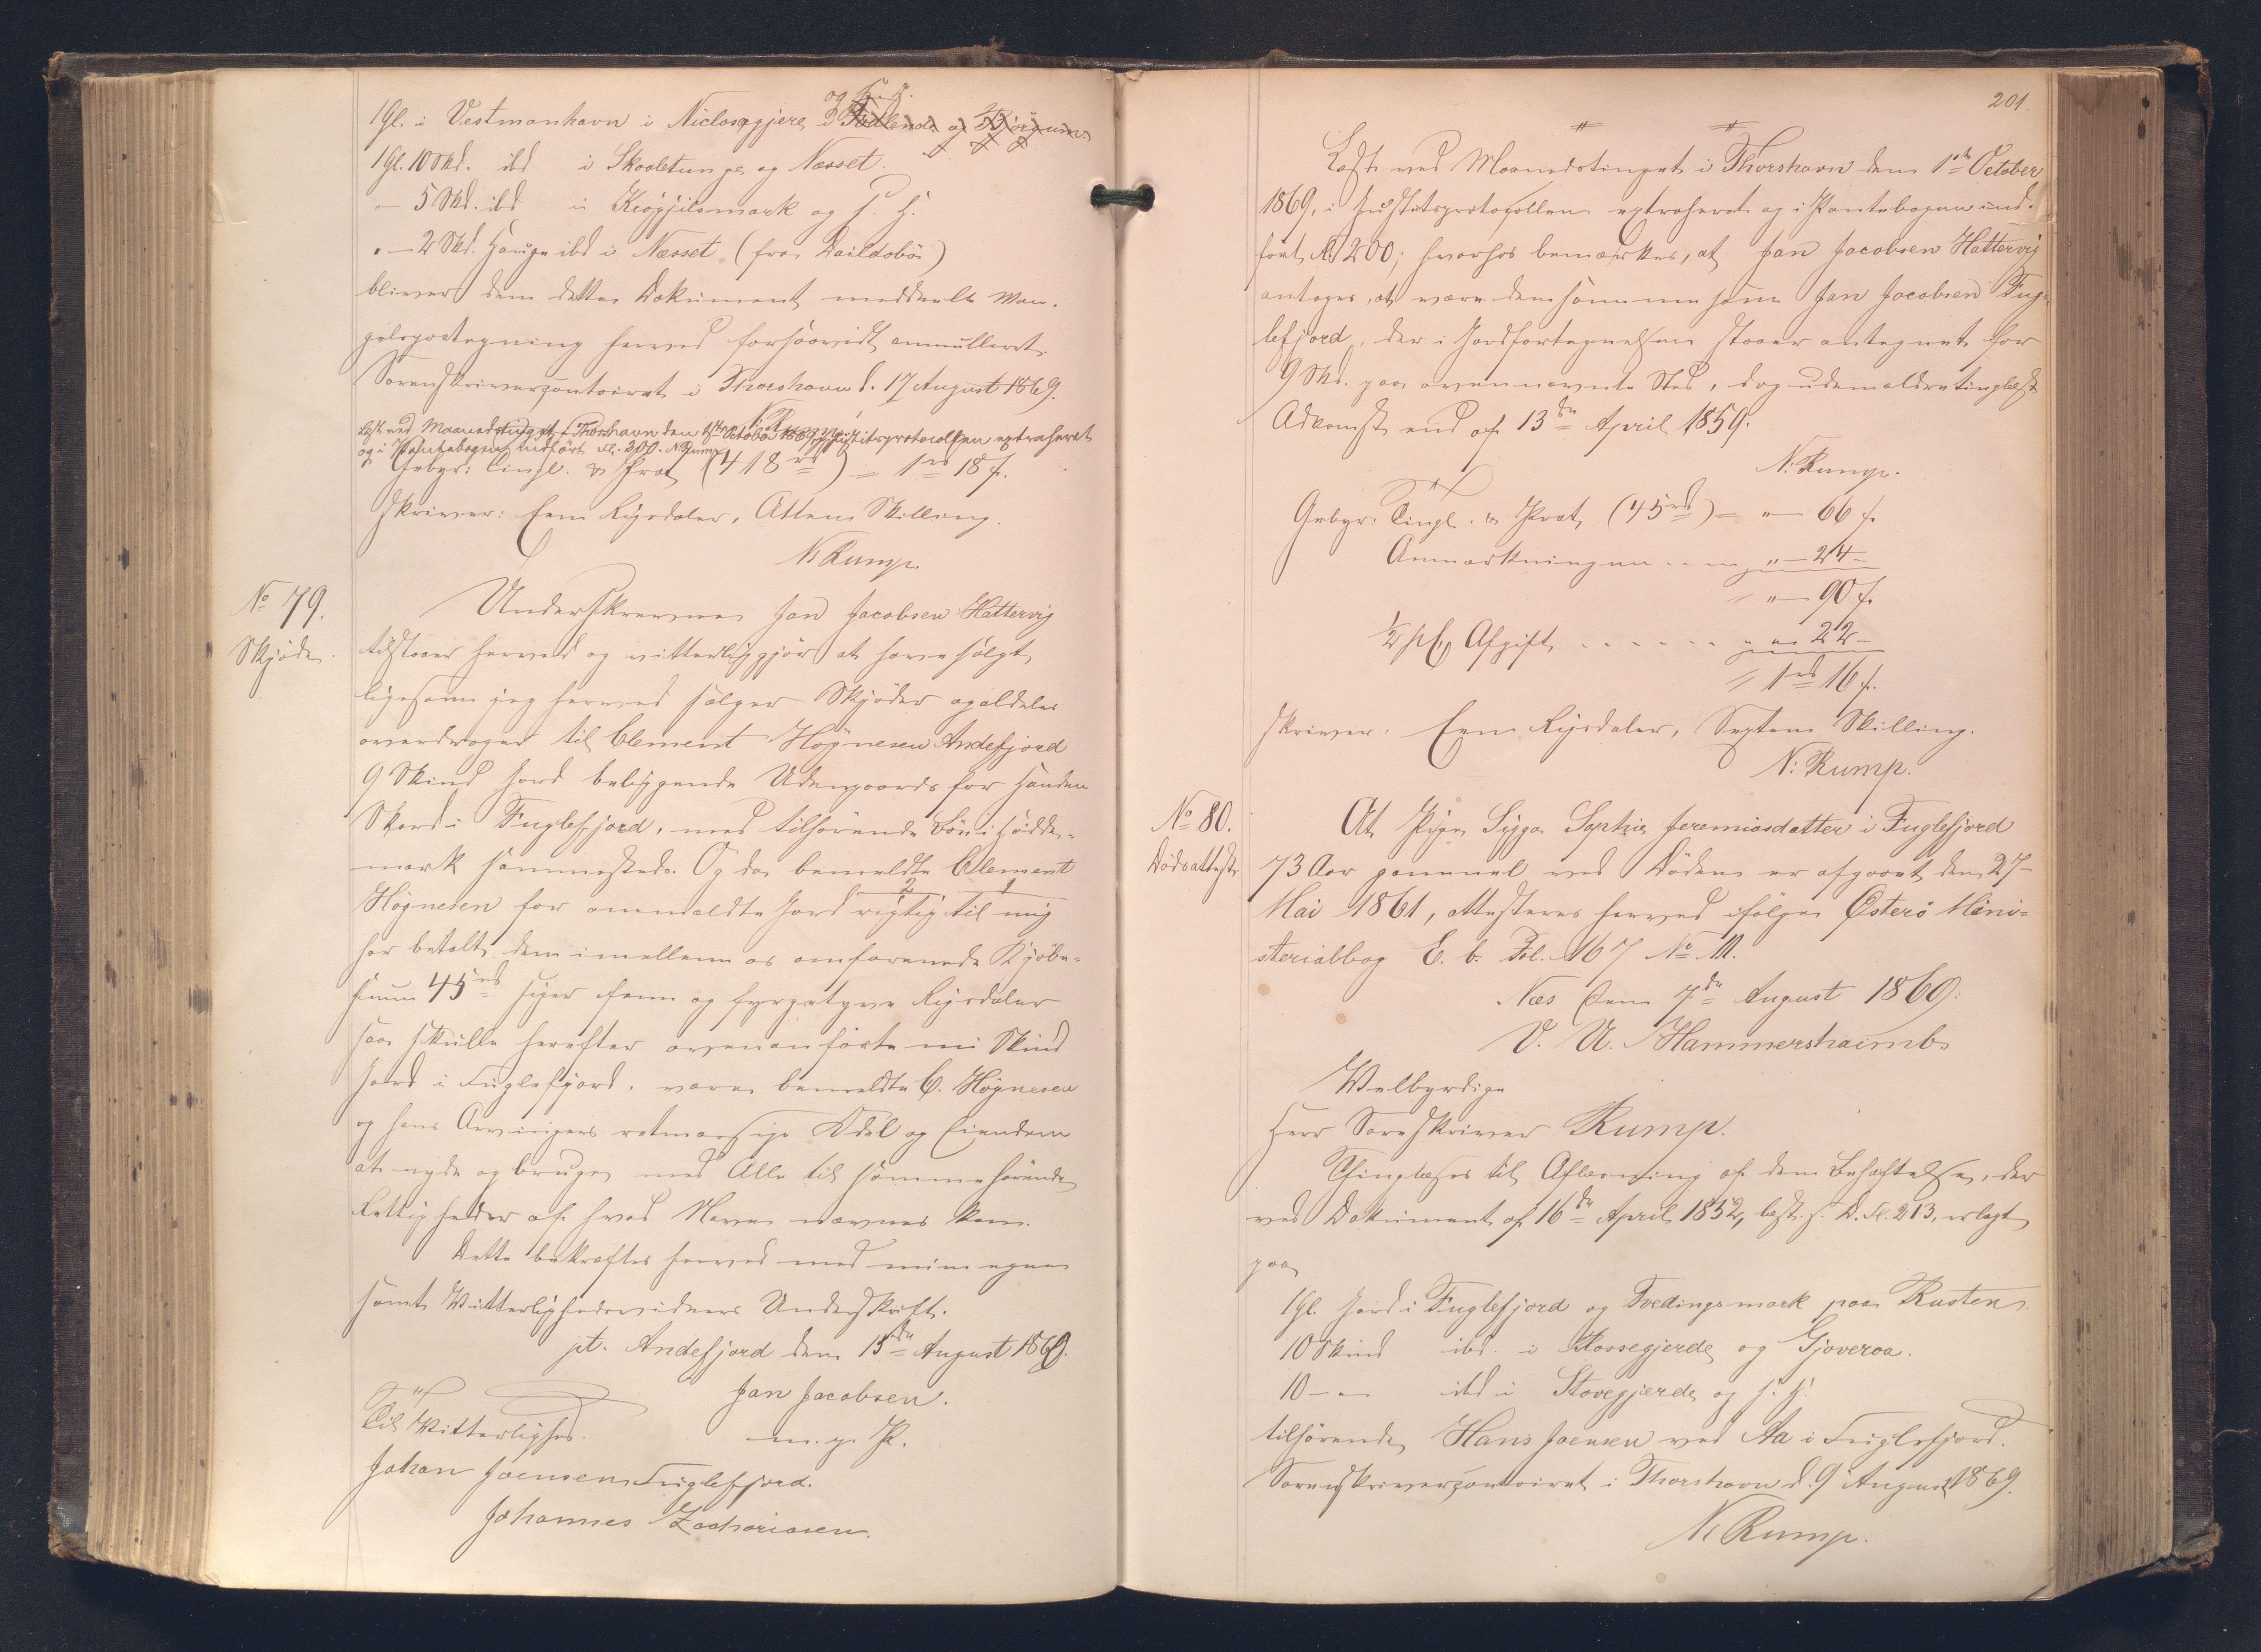 og H. H.
1 Gl. i Vestmanhavn i Niclasegjere i Fadlende og Björgum
1 Gl. 10 Skd. ibd i Skaaletunge og Næsset.
— 5 Skd. ibd i Krógjilsmark og s. H.
" — 2 Skd. Hauge ibd i Næsset (fra Daildobö)
bliver den dette Dokument meddeelte Man-
gelspaategning herved forsaavidt annulleret.
Sorenskrivercontoiret i Thorshavn d. 17 August 1869.
N: Rump.
Læst ved Maanedstinget i Thorshavn den 1ste October 1869, i Justitsprotocollen extraheret
og i Pantebogen indfört Fol. 200. N. Rump
Gebyr: Tingl. & Prot. (418 rd) = 1 rd 18 s.
skriver: Een Rigsdaler, Atten Skilling.
N: Rump.
No 79.
Skjöde.
Underskrevne Jan Jacobsen Hattervig
tilstaaer herved og vitterliggjör at have solgt
ligesom jeg herved sælger Skjöder og aldeles
overdrager til Clement Högnesen Andefjord
9 Skind Jord beliggende Udengaards for Handen
Skard i Fuglefjord, med tilhörende Böe i Hödde-
mark sammesteds. Og da bemeldte Clement
Högnesen for anmeldte Jord rigtig til mig
har betalt den imellem os omforenede Kjöbe-
sum 45 rd siger fem og fyrgetyve Rigsdaler
saa skulle herefter ovenanförte ni Skind
Jord i Fuglefjord, være bemeldte C. Högnesen
og hans Arvingers retmæssige Odel og Eiendom
at nyde og bruge med Alle til samme hörende
Rettigheder af hvad Navn nævnes kan.
Dette bekræftes herved med min egen
samt Vitterlighedsvidners Underskrift.
pt. Andefjord den 15de August 1869.
Jan Jacobsen.
m. p. P.
Til Vitterlighed.
Johan Joensen Fuglefjord.
Johannes Zachariasen.
201.
Læst ved Maanedstinget i Thorshavn den 1ste October
1869, i Justitsprotocollen extraheret og i Pantebogen ind-
fört Fl 200; hvorhos bemærkes, at Jan Jacobsen Hattervig
antages at være den samme som Jan Jacobsen Fug-
lefjord, der i Jordfortegnelsen staaer antegnet for
9 Skd. paa ovennævnte Sted, dog uden ældre tinglæst
Adkomst end af 13de April 1859.
N: Rump.
Gebyr: Tingl. & Prot. (45 rd) = " — 66 s.
Anmærkningen . . . " — 24 —
" — 90 s.
1/2 pCt Afgift . . . . . . " — 22 —
1 rd 16 s.
skriver: Een Rigsdaler, Sexten Skilling.
N: Rump.
No 80.
Dödsattest.
At Pige Sigga Sophie Jeremiasdatter i Fuglefjord
73 Aar gammel ved Döden er afgaaet den 27–
Mai 1861, attesteres herved ifölge Österö Mini-
sterialbog E. b. Fol. 167 No 11.
Næs den 7de August 1869.
V. U. Hammershaimb
Velbyrdige
Herr Sorenskriver Rump.
Thinglæses til Aflysning af den Behæftelse, der
ved Dokument af 16de April 1852, læst s. D. Fl. 213, er lagt
paa
1 Gl. Jord i Fuglefjord og Tvedingsmark paa Rusten
10 Skind ibd. i Kossegjerde og Gjoveroa.
10 — " ibd i Stovegjerde og s. H.
tilhörende Hans Joensen ved Aa i Fuglefjord.
Sorenskrivercontoiret i Thorshavn d. 9 August 1869.
N: Rump.